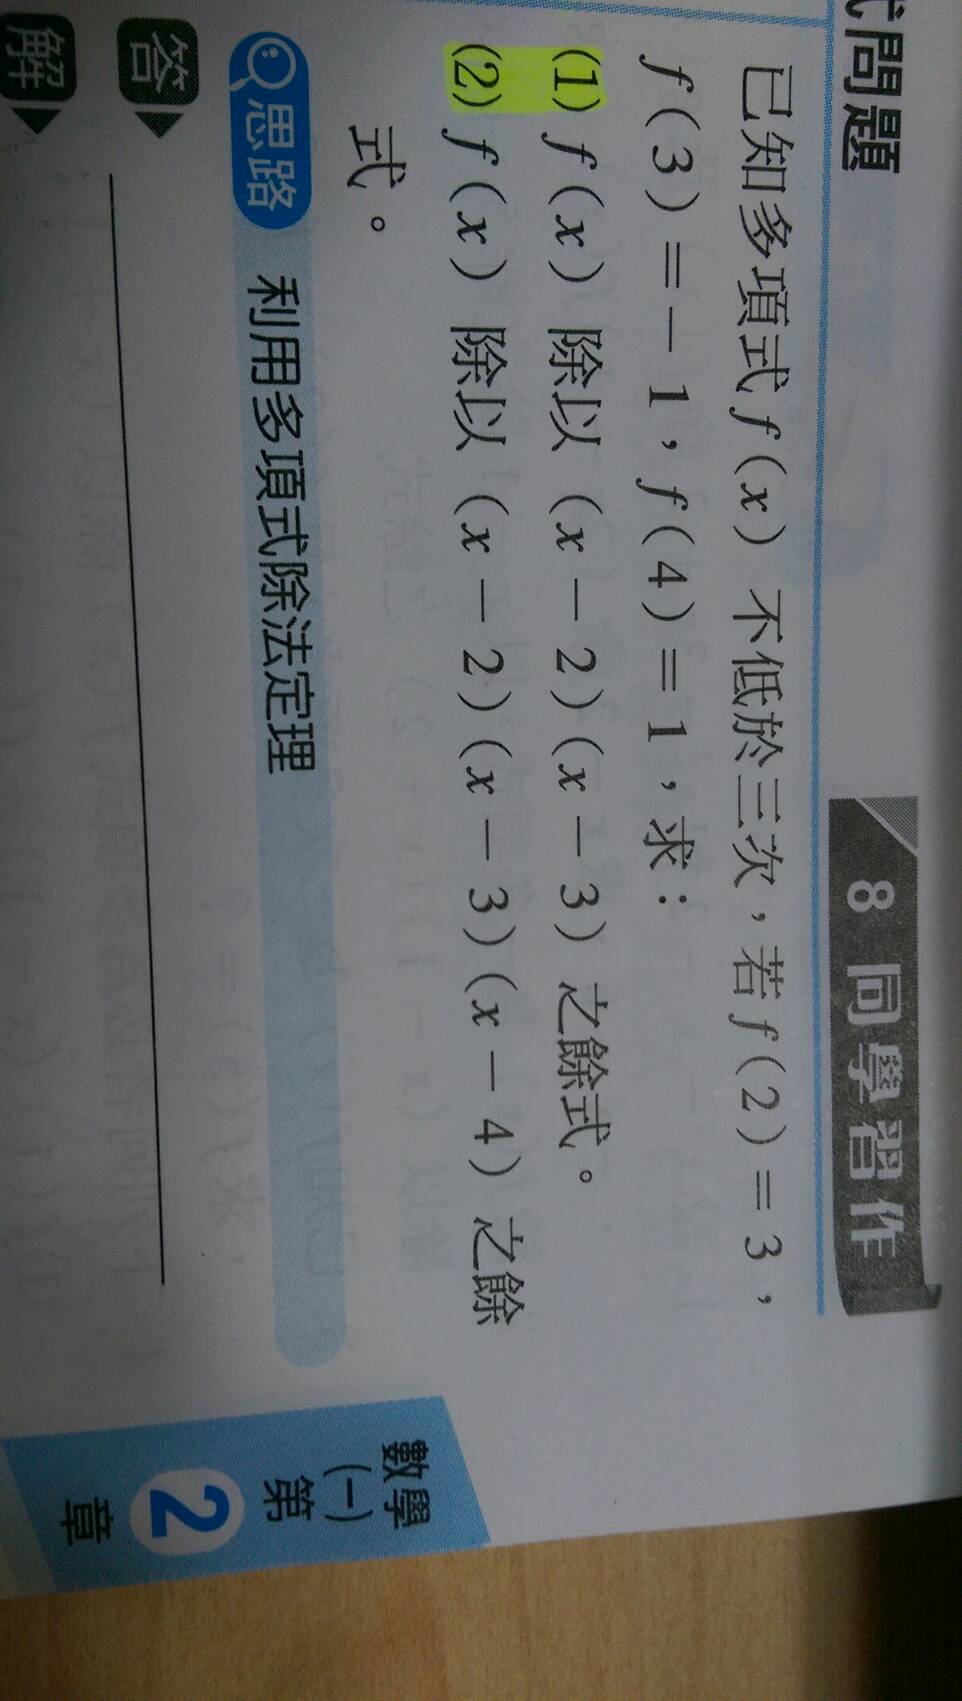 式問題
8 同學習作
已知多項式 f(x) 不低於三次，若 f(2)=3，
f(3)=-1，f(4)=1，求：
(1) f(x) 除以 (x-2)(x-3) 之餘式。
(2) f(x) 除以 (x-2)(x-3)(x-4) 之餘
式。
思路 利用多項式除法定理
答
解
數學
(一)
第
2
章